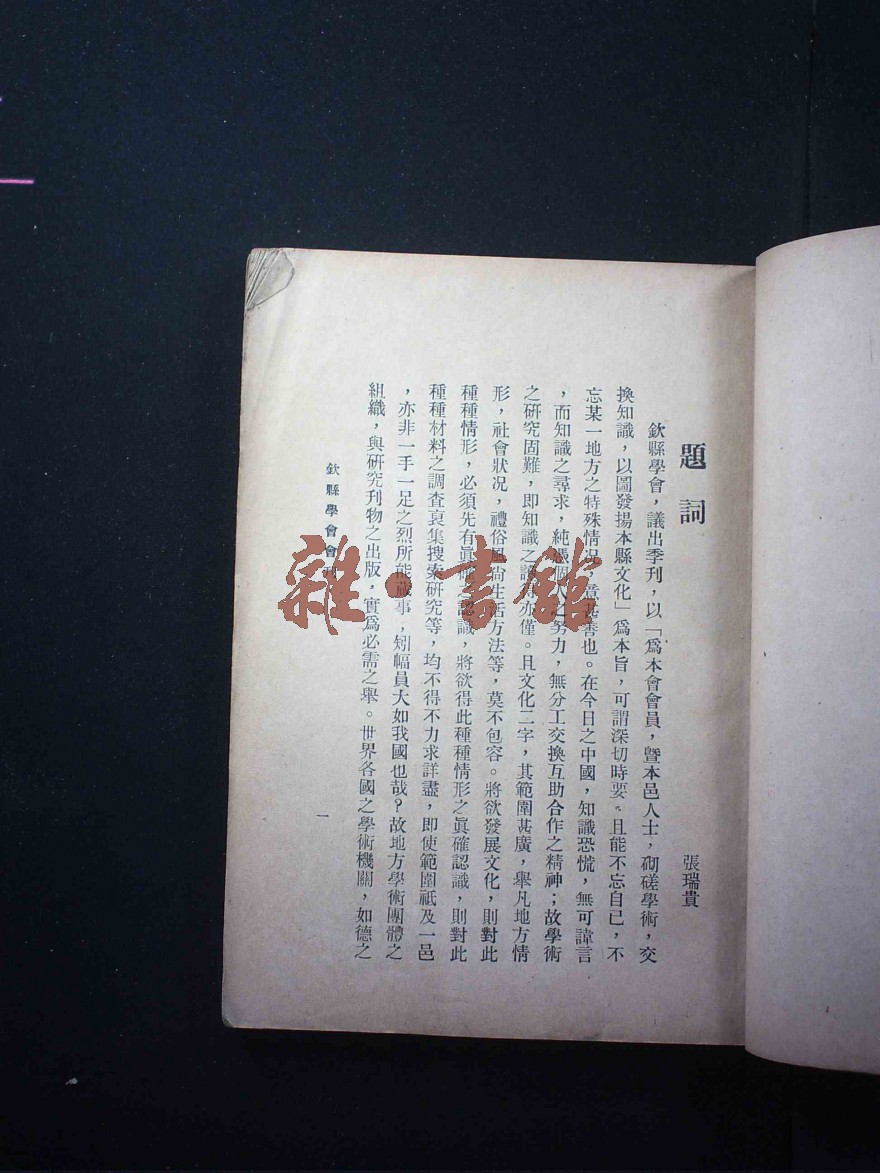 題詞
張瑞貴
欽縣學會,議出季刊,以「爲本會會員,曁本邑人士,砌磋學術,交
換知識,以圖發揚本縣文化」爲本旨,可謂深切時要。且能不忘自己,不
忘某一地方之特殊情况,意甚善也。在今日之中國,知識恐慌,無可諱言
,而知識之尋求,純憑個人之努力,無分工交換互助合作之精神;故學術
之研究固難,即知識之亦僅。且文化二字,其範圍甚廣,舉凡地方情
形,社會狀况,禮俗風尚生活方法等,莫不包容。將欲發展文化,則對此
種種情形,必須先有眞確認識,將欲得此種種情形之眞確認識,則對此
種種材料之調查裒集搜索研究等,均不得不力求詳盡,即使範圍祇及一邑
,亦非一手一足之烈所能蕆事,矧幅員大如我國也哉?故地方學術團體之
組織,與研究刊物之出版,實爲必需之舉。世界各國之學術機關,如德之
欽縣學會會刊
一
雜·書館